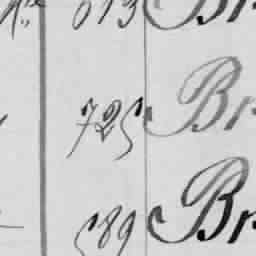 613 Br
725 Br
589 Br